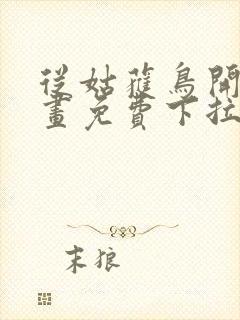 從姑蘿鳥開
畫免費下拉
末狼